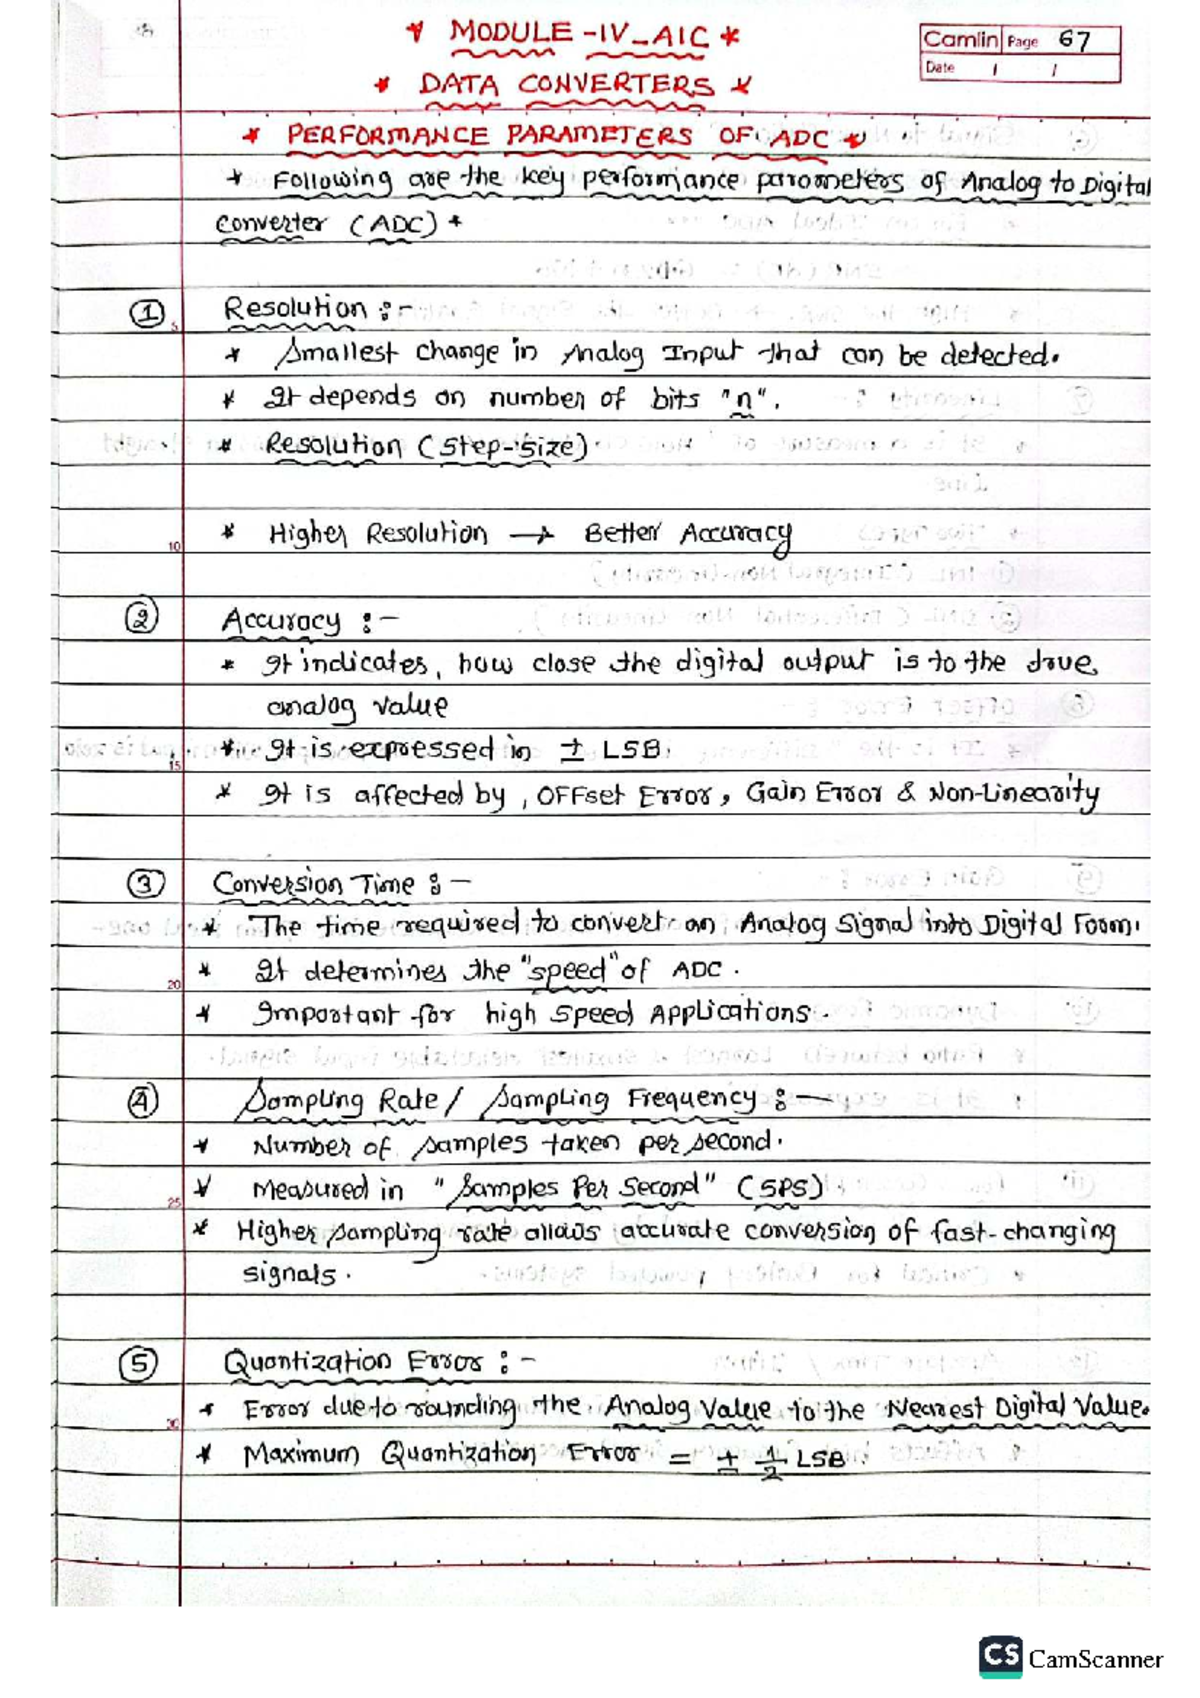 * MODULE -IV_AIC *
Camlin Page 67
Date / /
* DATA CONVERTERS *
* PERFORMANCE PARAMETERS OF ADC *
* Following are the key performance parameters of Analog to Digital
Converter (ADC) *
① Resolution :-
5
* Smallest change in Analog Input that can be detected.
* It depends on number of bits "n".
* Resolution (Step-Size)
* Higher Resolution → Better Accuracy
10
② Accuracy :-
* It indicates, how close the digital output is to the true
analog value
* It is expressed in ± LSB
15
* It is affected by, OFFset Error, Gain Error & Non-Linearity
③ Conversion Time :-
* The time required to convert an Analog Signal into Digital Form.
* It determines the "speed" of ADC.
20
* Important for high speed Applications.
④ Sampling Rate / Sampling Frequency :-
* Number of samples taken per second.
* Measured in "Samples Per Second" (SPS)
25
* Higher sampling rate allows accurate conversion of fast-changing
signals.
⑤ Quantization Error :-
* Error due to rounding the Analog Value to the Nearest Digital Value.
30
* Maximum Quantization Error = ± 1/2 LSB
CS CamScanner